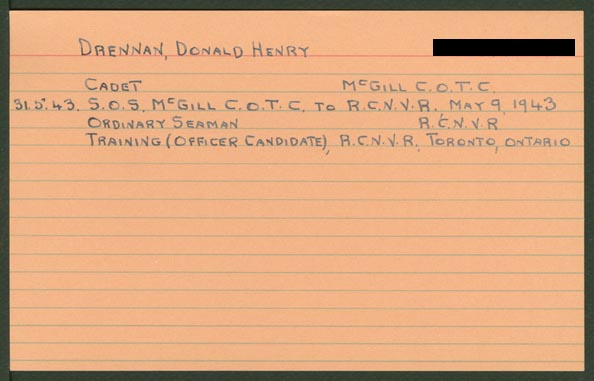 DRENNAN, DONALD HENRY
CADET McGILL C.O.T.C.
31.5.43. S.O.S. McGILL C.O.T.C. TO R.C.N.V.R. MAY 9, 1943
ORDINARY SEAMAN R.C.N.V.R
TRAINING (OFFICER CANDIDATE), R.C.N.V.R. TORONTO, ONTARIO